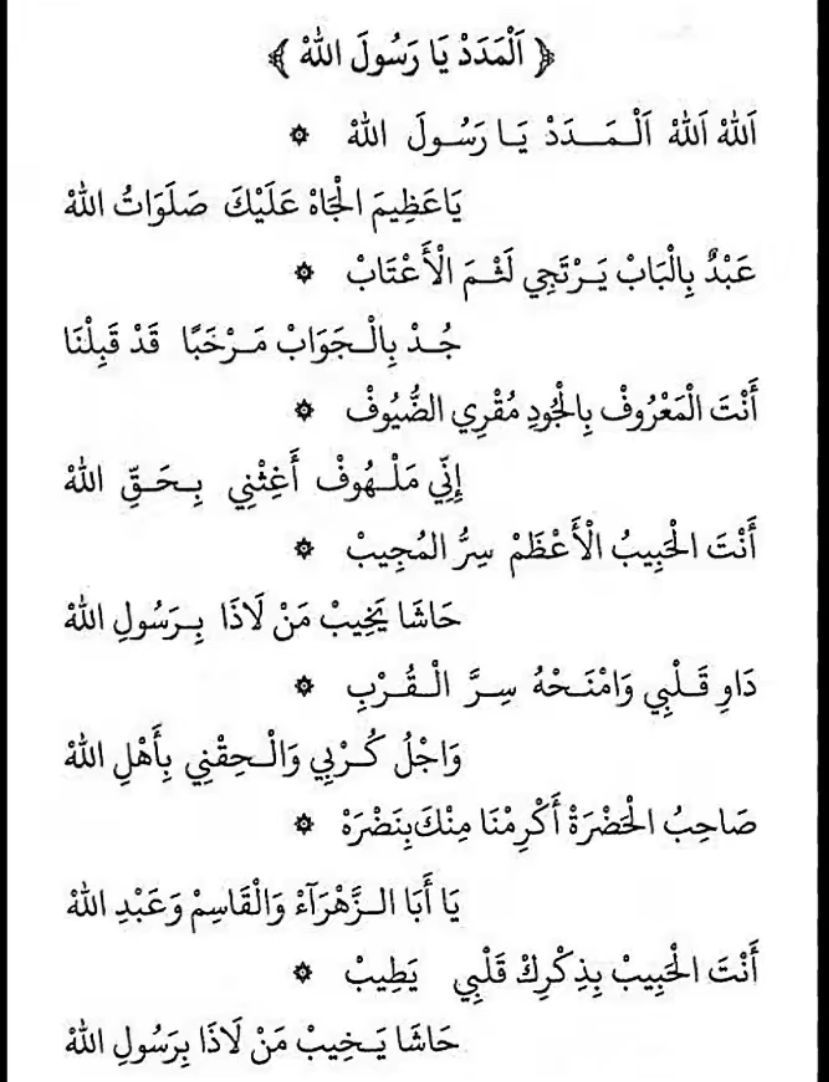 ﴿ اَلْمَدَدْ يَا رَسُولَ اللهْ ﴾
اَللهْ اَللهْ اَلْمَدَدْ يَا رَسُولَ اللهْ ۞
يَاعَظِيمَ الْجَاهْ عَلَيْكَ صَلَوَاتُ اللهْ
عَبْدٌ بِالْبَابْ يَرْتَجِي لَثْمَ الْأَعْتَابْ ۞
جُدْ بِالْجَوَابْ مَرْحَبًا قَدْ قَبِلْنَا
أَنْتَ الْمَعْرُوفْ بِالْجُودِ مُقْرِي الضُّيُوفْ ۞
إِنِّي مَلْهُوفْ أَغِثْنِي بِحَقِّ اللهْ
أَنْتَ الْحَبِيبُ الْأَعْظَمْ سِرُّ المُجِيبْ ۞
حَاشَا يَخِيبْ مَنْ لَاذَا بِرَسُولِ اللهْ
دَاوِ قَلْبِي وَامْنَحْهُ سِرَّ الْقُرْبِ ۞
وَاجْلُ كُرْبِي وَالْحِقْنِي بِأَهْلِ اللهْ
صَاحِبُ الْحَضْرَةْ أَكْرِمْنَا مِنْكَ بِنَضْرَةْ ۞
يَا أَبَا الزَّهْرَآءْ وَالْقَاسِمْ وَعَبْدِ اللهْ
أَنْتَ الْحَبِيبْ بِذِكْرِكْ قَلْبِي يَطِيبْ ۞
حَاشَا يَخِيبْ مَنْ لَاذَا بِرَسُولِ اللهْ